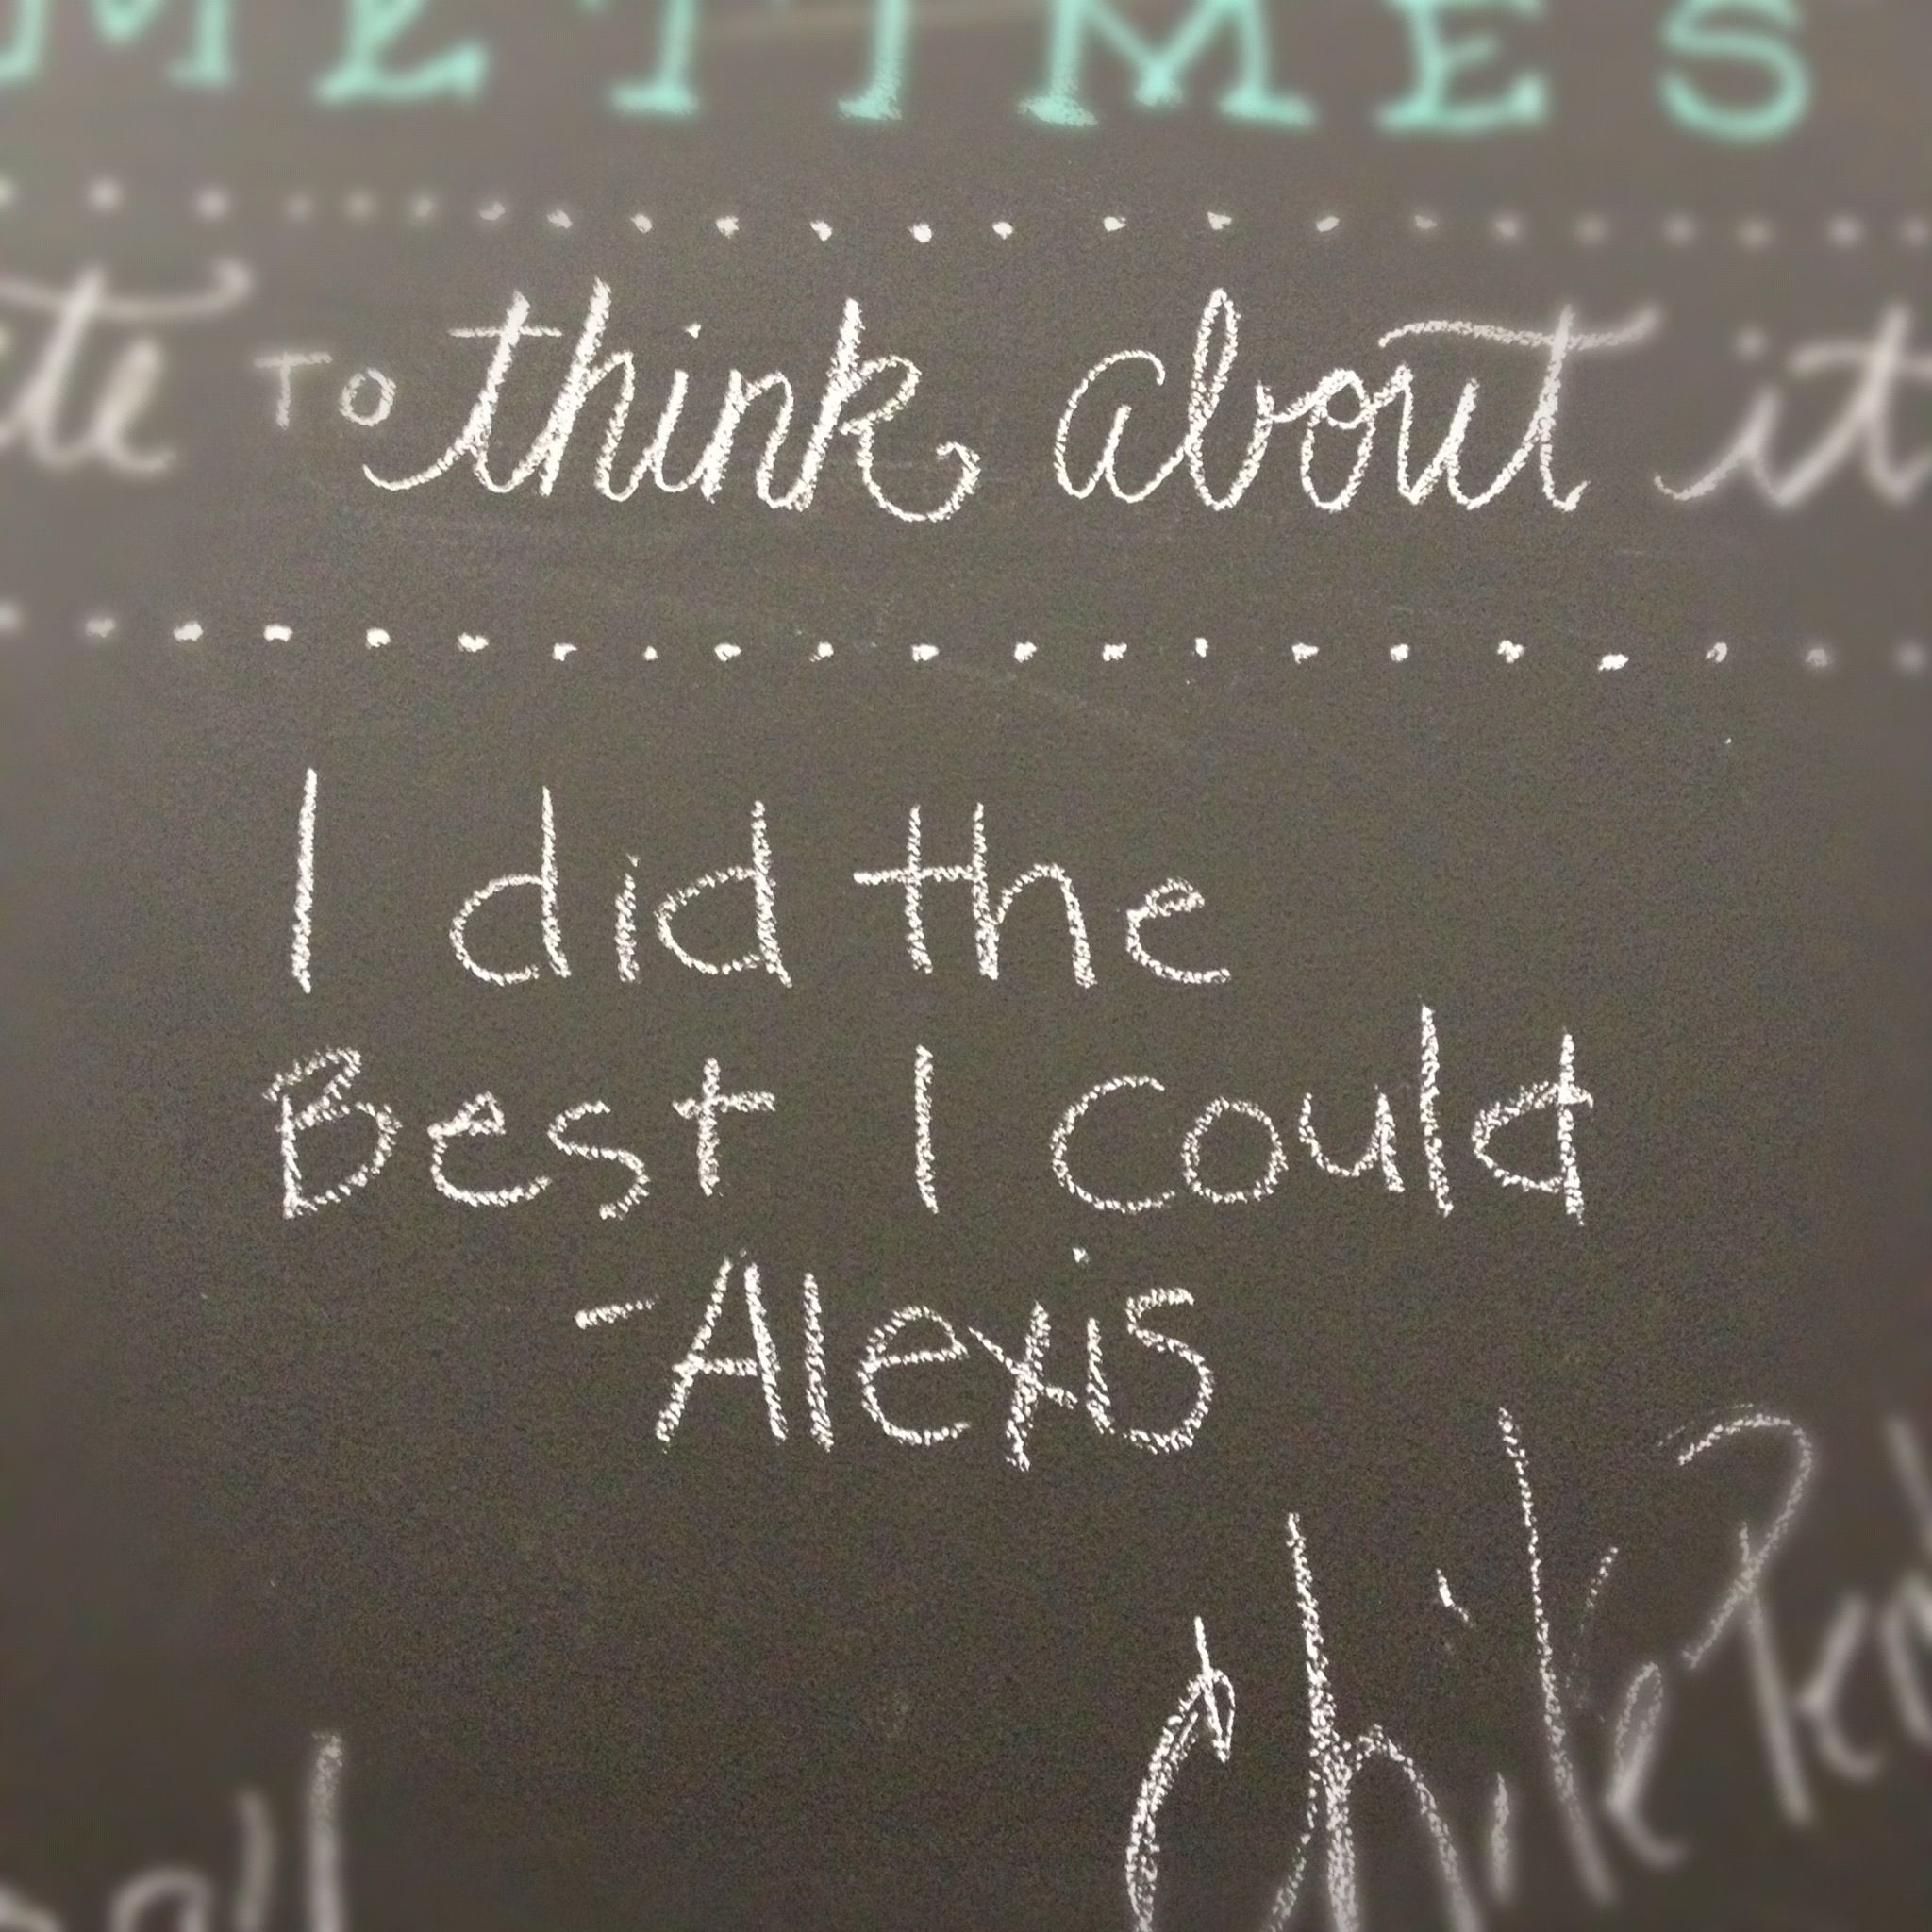 METIMES
te TO think about it
I did the
Best I could
-Alexis